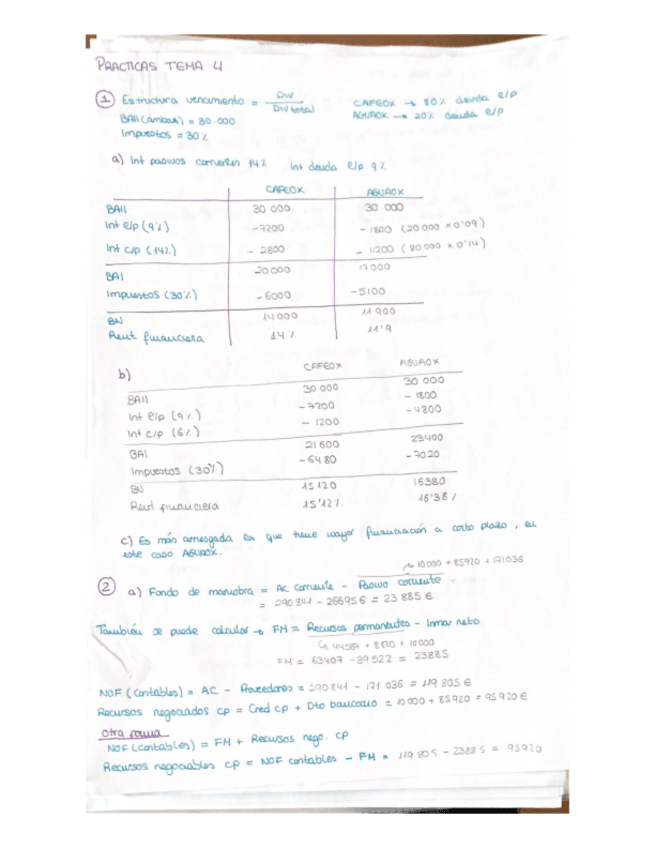 PRACTICAS TEMA 4
① Estructura vencimiento = Div / Div total
CAFEOX → 80% deuda e/p
BAII (ambas) = 30.000
AGUAOX → 20% deuda e/p
Impuestos = 30%
a) Int pasivos corrientes 14%   Int deuda e/p 9%
CAFEOX   AGUAOX
BAII   30 000   30.000
Int e/p (9%)   -7200   - 1800 (20 000 x 0'09)
Int c/p (14%)   - 2800   - 11200 (80 000 x 0'14)
BAI   20 000   17000
Impuestos (30%)   -6000   -5100
BN   14 000   11 900
Rent financiera   14%   11'9
b)   CAFEOX   AGUAOX
BAII   30 000   30 000
Int e/p (9%)   -7200   - 1800
Int c/p (6%)   - 1200   -4800
BAI   21 600   23400
Impuestos (30%)   -6480   -7020
BN   15 120   16380
Rent financiera   15'12%   16'38%
c) Es más arriesgada la que tiene mayor financiación a corto plazo, en
este caso AGUAOX.
→ 10 000 + 85920 + 171036
② a) Fondo de maniobra = Ac corriente - Pasivo corriente =
= 290 841 - 266956 = 23 885 €
También se puede calcular → FM = Recursos permanentes - Inmov neto
↳ 44587 + 8820 + 10000
FM = 63407 - 39522 = 23885
NOF (contables) = AC - Proveedores = 290841 - 171 036 = 119 805 €
Recursos negociados cp = Cred cp + Dto bancario = 10 000 + 85920 = 95920 €
Otra forma
NOF (contables) = FM + Recursos nego. cp
Recursos negociables cp = NOF contables - FM = 119 805 - 23885 = 95920